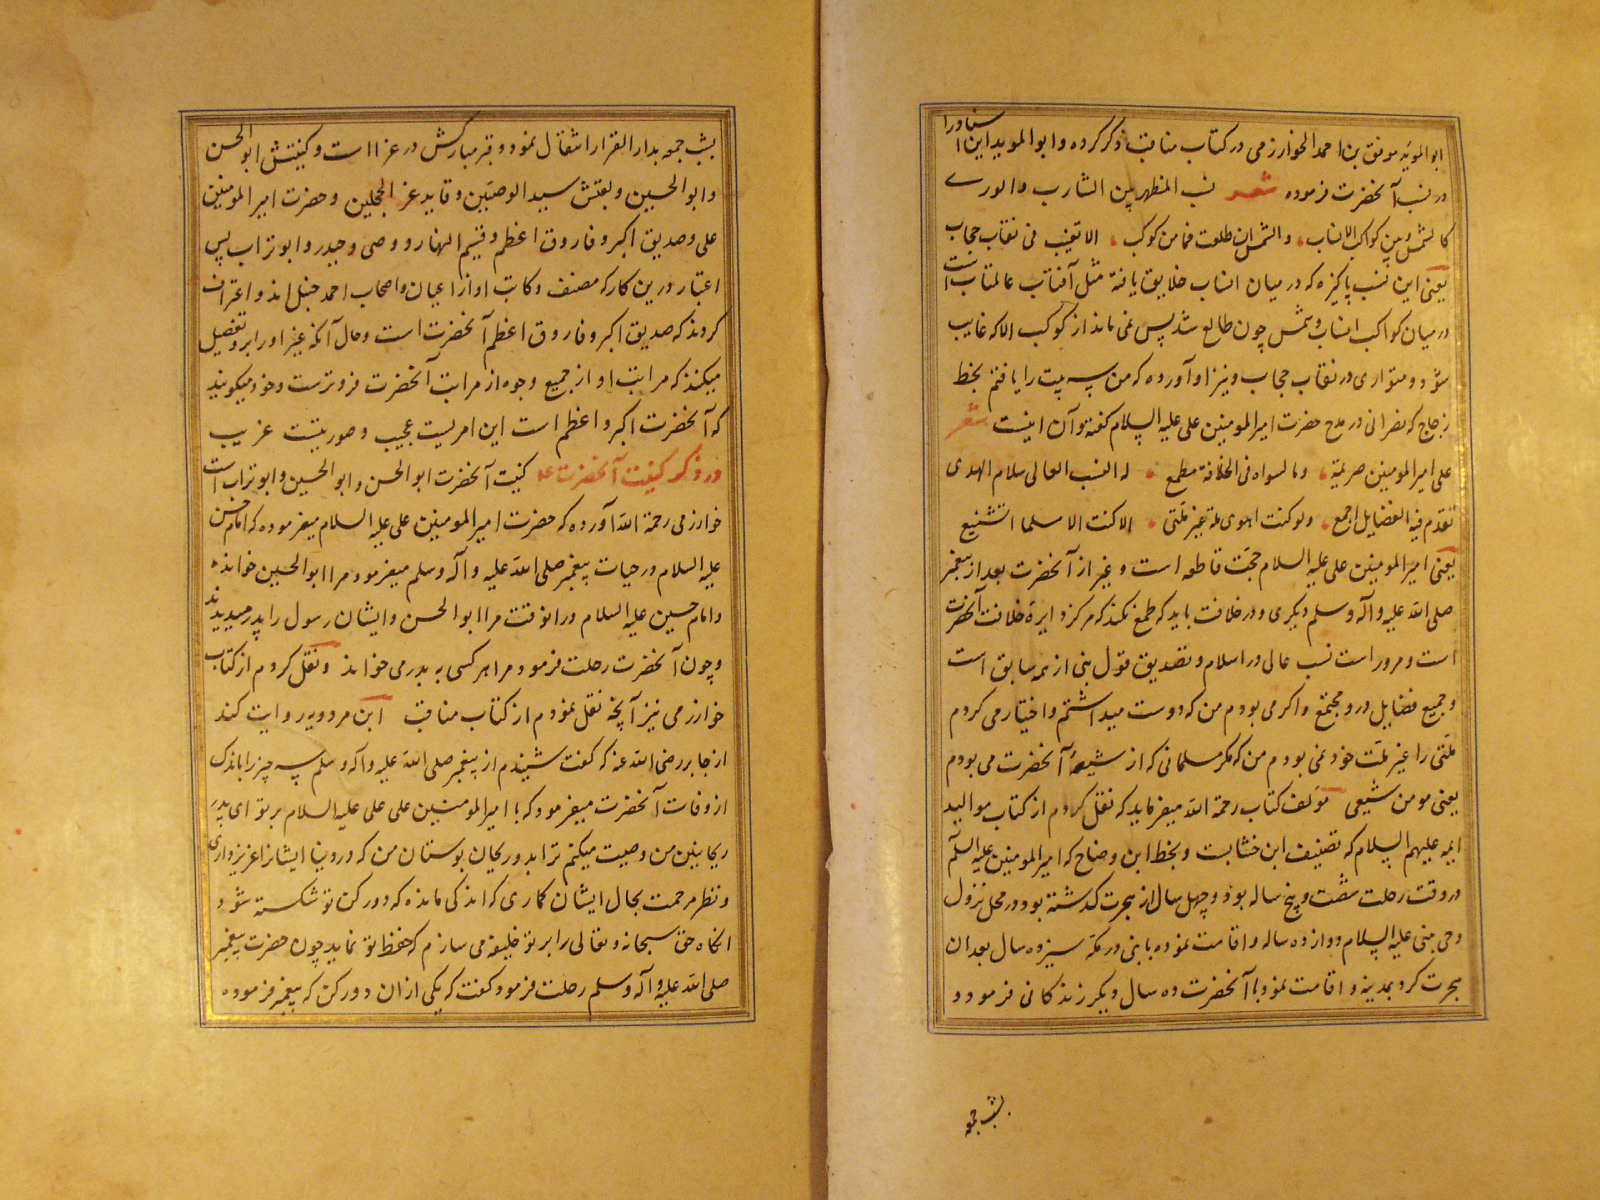 ابوالموید موفق بن احمد الخوارزمی در کتاب مناقب ذکر کرده و ابوالموید این
در نسب آنحضرت فرموده شعر نسب المطهر بین الشارب و الوری
کالشمس بین کواکب الانساب والشمس ان طلعت فمامن کوکب الا تغیب فی نقاب حجاب
یعنی این نسب پاکیزه که در میان انساب خلایق یافته مثل آفتاب عالمتاب است
در میان کواکب انساب و شمس چون طالع شد پس نمی ماند از کوکب الا که غایب
شود و متواری در نقاب حجاب و نیز او آورده که من سه بیت را یافتم بخط
زجاج که نصرانی در مدح حضرت امیرالمومنین علی علیه السلام کفته و آن اینست شعر
علی امیرالمومنین صریمة وما لسواه فی الخلافة مطمع له النسب العالی سلام الهدی
تقدم فیه الفضایل اجمع ولو کنت اهوی ملة غیر ملتی الا کنت الا مسلما اتشیع
یعنی امیرالمومنین علی علیه السلام حجت قاطعه است و غیر از آنحضرت بعد از پیغمبر
صلی الله علیه و آله وسلم دیکری و در خلافت باید که طمع نکند که مرکز دایرهٔ خلافت آنحضرت
است و مرور است نسب عالی در اسلام و تصدیق قول نبی از همه سابق است
و جمیع فضایل درو مجتمع و اکر می بودم من که دوست میداشتم و اختیار می کردم
ملتی را غیر ملت خود نمی بودم من که مکر مسلمانی که از شیعهٔ آنحضرت می بودم
یعنی مومن شیعی مولف کتاب رحمة الله میفرماید که نقل کردم از کتاب موالید
ایمه علیهم السلام که تصنیف ابن خشابست و بخط ابن وضاح که امیرالمومنین علیه السلام
در وقت رحلت شصت و پنج ساله بود و چهل سال از هجرت کدشته بود و در محل نزول
وحی بنی علیه السلام دوازده ساله و اقامت نموده بانبی در مکه سیزده سال بعد ان
هجرت کرد بمدینه و اقامت نمود با آنحضرت ده سال و دیکر زندکانی فرمود و
بشب جمعه
بشب جمعه بدار القرار انتقال نمود و قبر مبارکش در غرا است و کنیتش ابوالحسن
و ابوالحسین و لقبش سید الوصیین و قاید غر المحجلین و حضرت امیرالمومنین
علی و صدیق اکبر و فاروق اعظم و قسیم النار و وصی و حیدر و ابوتراب پس
اعتبار درین کار که مصنف و کاتب او از اعیان و اصحاب احمد حنبل اند و اعتراف
کردند که صدیق اکبر و فاروق اعظم آنحضرت است و حال آنکه غیر او را برو تفضیل
میکنند که مراتب او از جمیع وجوه از مراتب آنحضرت فروترست و خود میکویند
که آنحضرت اکبر و اعظم است این امریست عجیب و صورتیست غریب
در ذکر کنیت آنحضرت کنیت آنحضرت ابوالحسن و ابوالحسین و ابوتراب است
خوارزمی رحمة الله آورده که حضرت امیرالمومنین علی علیه السلام میفرموده که امام حسن
علیه السلام در حیات پیغمبر صلی الله علیه و آله وسلم میفرمود مرا ابوالحسین خوانده
و امام حسین علیه السلام در انوقت مرا ابوالحسن و ایشان رسول را پدر میدیدند
و چون آنحضرت رحلت فرمود مرا هر کسی به پدر می خواند و نقل کردم از کتاب
خوارزمی نیز آنچه نقل نمودم از کتاب مناقب ابن مردویه روایت کند
از جابر رضی الله عنه که کفت شنیدم از پیغمبر صلی الله علیه و آله وسلم سه چیز را باندک
از وفات آنحضرت میفرمود که با امیرالمومنین علی علی علیه السلام بر تو ای پدر
ریحانین من وصیت میکنم ترا بدو ریحان بوستان من که در دنیا ایشانرا عزیز داری
و نظر مرحمت بحال ایشان کماری که اندکی مانده که دو رکن تو شکسته شود و
انکاه حق سبحانه و تعالی را بر تو خلیفه می سازم که حفظ تو نماید چون حضرت پیغمبر
صلی الله علیه و آله وسلم رحلت فرمود کفت که یکی از ان دو رکن که پیغمبر فرموده